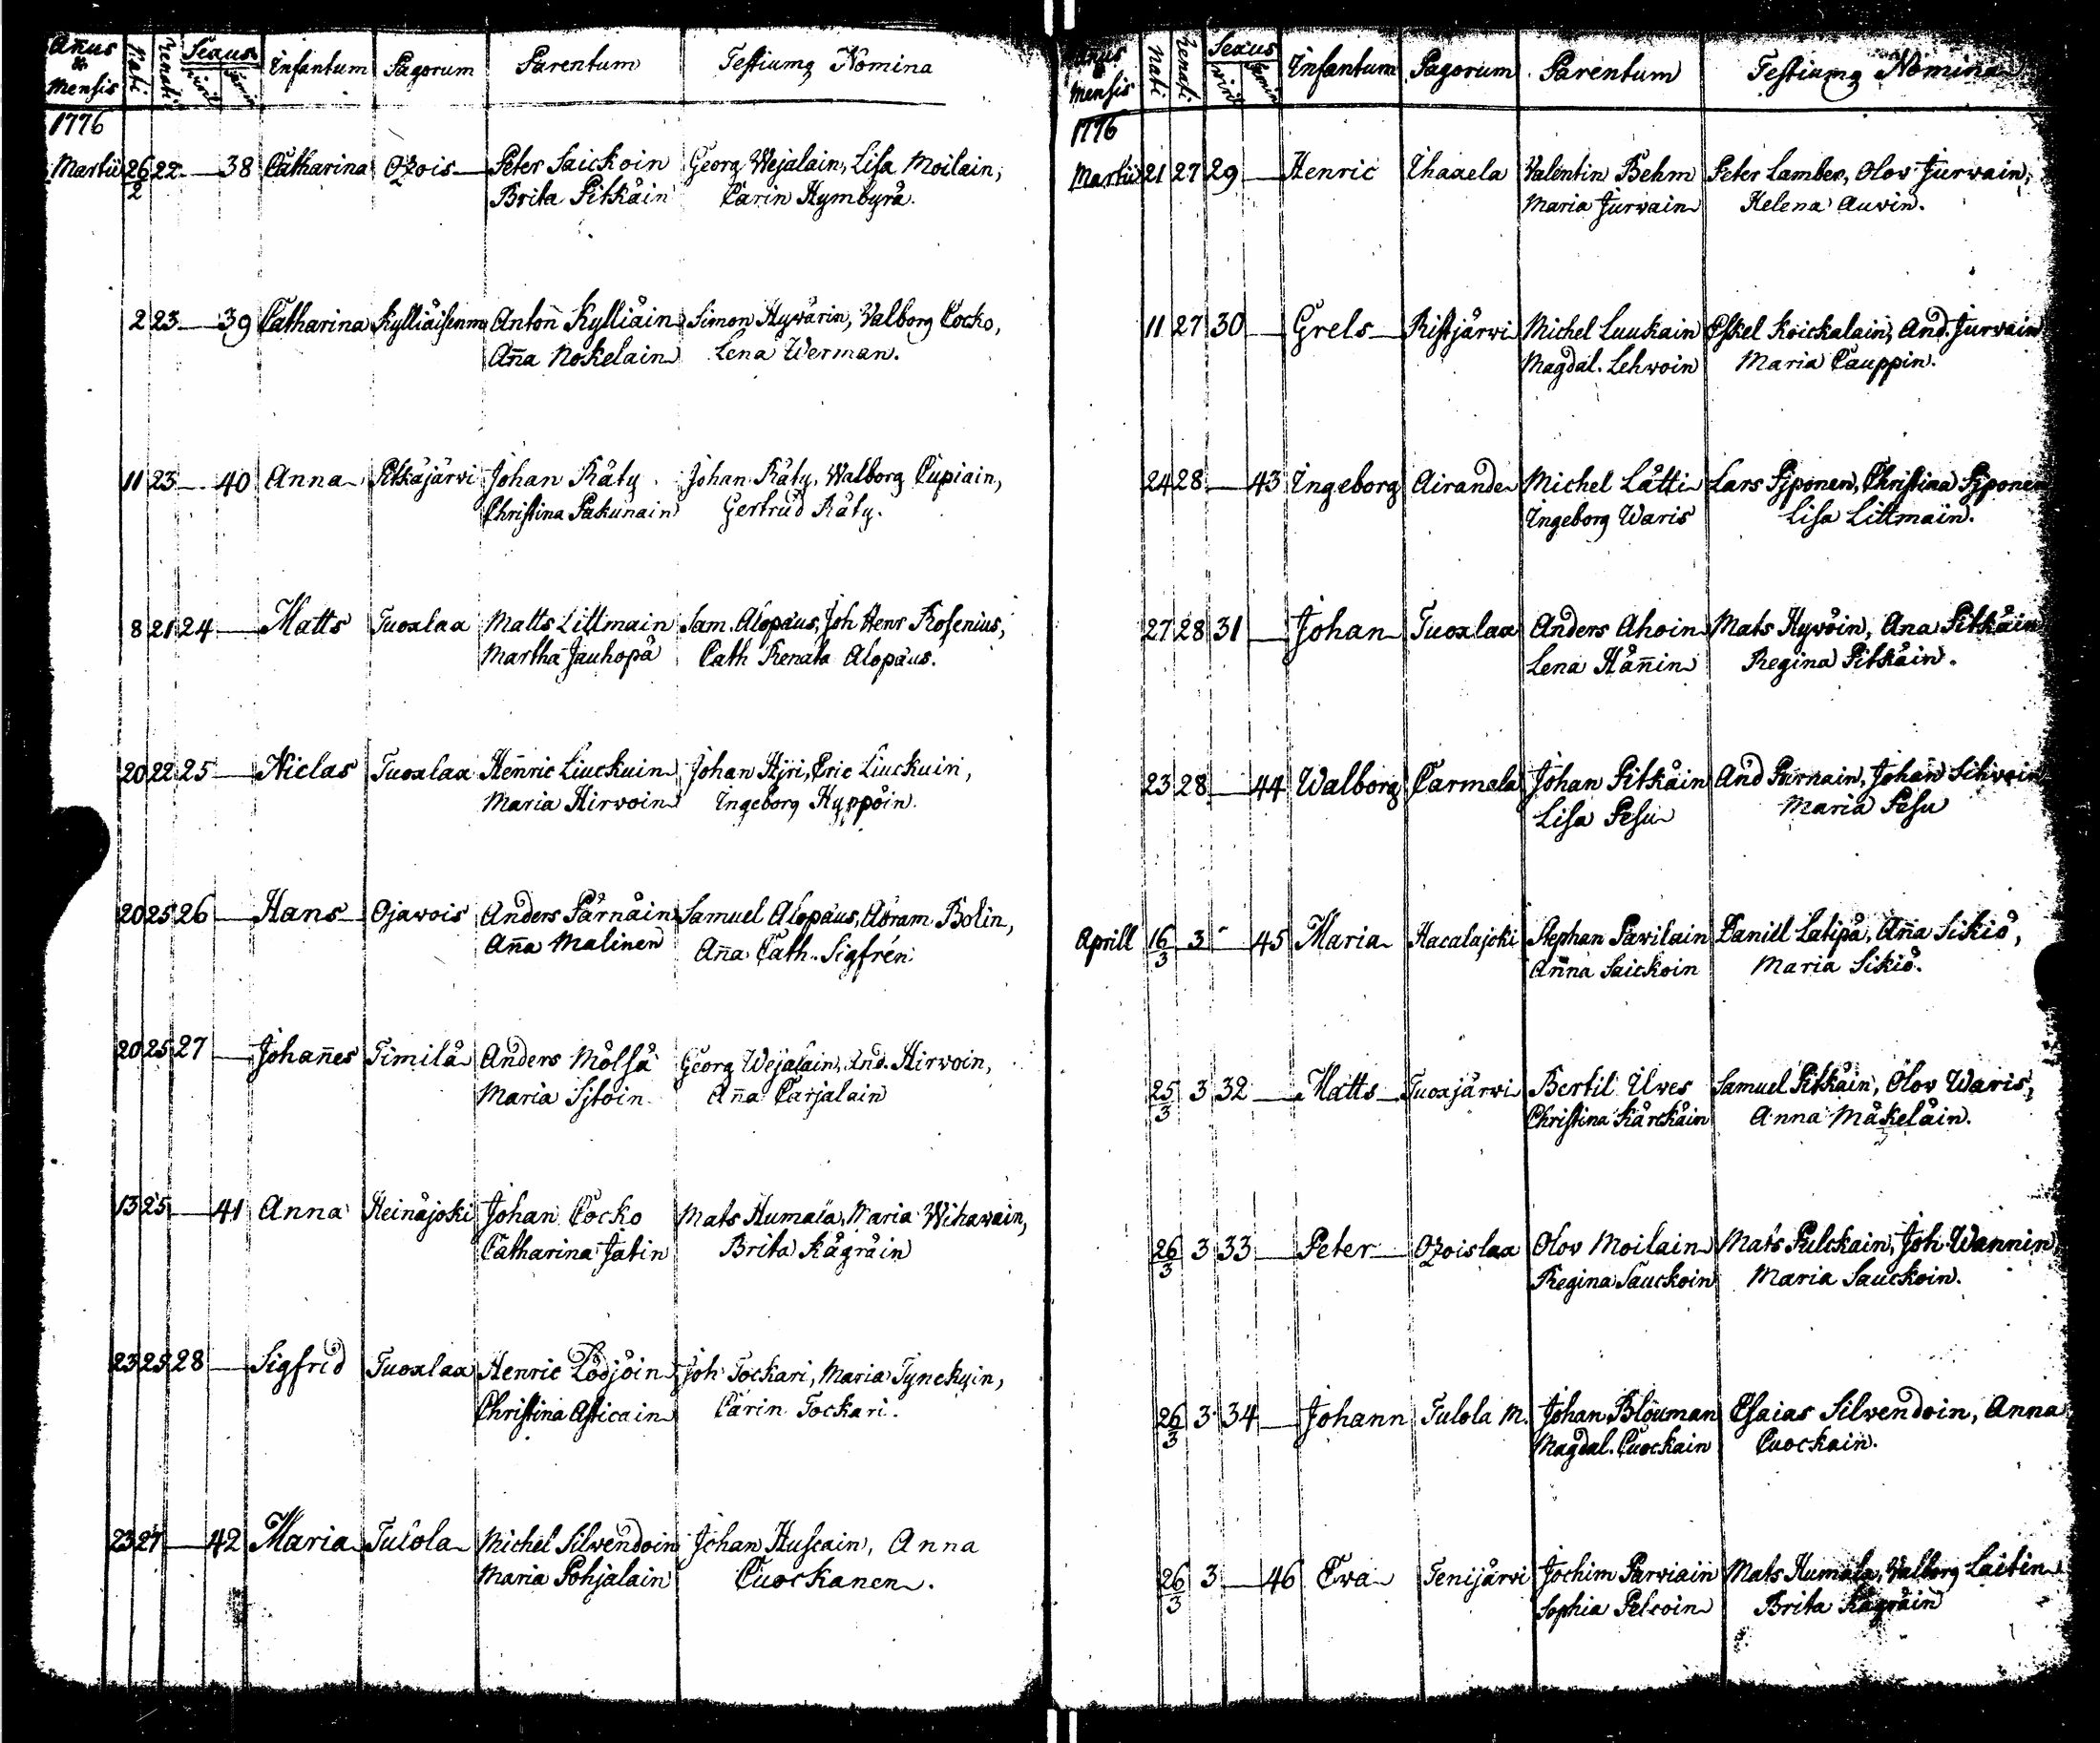 Añus & Mensis Nati Renati Sexus viril femin Infantum Pagorum Parentum Testiumq Nomina
1776
Martii 26/2 22 — 38 Catharina Ozois Peter Saickoin Georg Wejalain, Lisa Moilain,
Brita Pitkäin Carin Hymbyrä.
2 23 — 39 Catharina Kylliäisenm Anton Kylliäin Simon Hywärin, Valborg Cocko,
Aña Nokelain Lena Werman.
11 23 — 40 Anna Pitkäjärvi Johan Räty Johan Räty, Walborg Cupiain,
Christina Pakunain Gertrud Räty.
8 21 24 — Matts Tuoxlax Matts Littmain Sam. Alopäus, Joh Henr Rosenius,
Martha Jauhopä Cath Renata Alopäus.
20 22 25 — Niclas Tuoxlax Heñric Liuckuin Johan Hjri, Eric Liuckuin,
Maria Hirvoin Ingeborg Hyppöin.
20 25 26 — Hans Ojavois Anders Pärnäin Samuel Alopäus, Abram Bolin,
Aña Malinen Aña Cath. Sigfrén.
20 25 27 — Johañes Timilä Anders Mölsä Georg Wejalain, And. Hirvoin,
Maria Sjtoin Aña Carjalain
13 25 — 41 Anna Heinäjoki Johan Cocko Mats Humala, Maria Wihavain,
Catharina Jatin Brita Kägräin
23 25 28 — Sigfrid Tuoxlax Henric Lödjöin Joh Tockari, Maria Tynckyin,
Christina Asticain Carin Tockari.
23 27 — 42 Maria Tulola Michel Silvendoin Johan Huscain, Anna
Maria Pohjalain Cuockanen.
Añus & Mensis Nati Renati Sexus viril femin Infantum Pagorum Parentum Testiumq Nomina
1776
Martii 21 27 29 — Henric Ihaxela Valentin Behm Peter Lamber, Olov Jurvain,
Maria Jurvain Helena Auvin.
11 27 30 — Grels Ristjärvi Michel Luukain Eskel Koickalain, And. Jurvain
Magdal. Lehvoin Maria Cauppin.
24 28 — 43 Ingeborg Airande Michel Lätti Lars Pjponen, Christina Pjponen
Ingeborg Waris Lisa Littmain.
27 28 31 — Johan Tuoxlax Anders Ahoin Mats Hyvöin, Ana Pitkäin
Lena Häñin Regina Pitkäin.
23 28 — 44 Walborg Carmala Johan Pitkäin And Parnain, Johan Sihvoin
Lisa Pesu Maria Pesu
Aprill 16/3 3 - 45 Maria Hacalajoki Stephan Pavilain Daniel Latipä, Aña Sikiö,
Anna Saickoin Maria Sikiö.
25/3 3 32 — Matts Tuoxjärvi Bertil Ilves Samuel Pitkäin, Olov Waris,
Christina Kärckäin Anna Mäkeläin.
26/3 3 33 — Peter Ozoislax Olov Moilain Mats Pulckain, Joh Wannin
Regina Sauckoin Maria Sauckoin.
26/3 3 34 — Johann Tulola M. Johan Blöuman Esaias Silvendoin, Anna
Magdal. Cuockain Cuockain.
26/3 3 — 46 Eva Tenijärvi Jochim Parviain Mats Humala, Walborg Laitin
Sophia Pelcoin Brita Kägräin